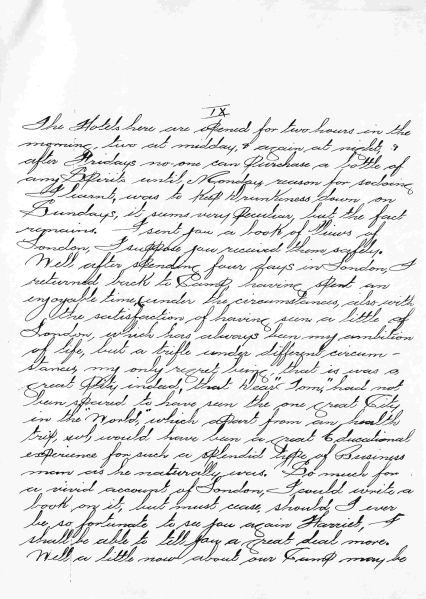 IX
The Hotels here are opened for two hours in the
morning, two at midday, & again at night, &
after Fridays no one can Purchase a bottle of
any Spirits until Monday, reason for so doing
I learnt, was to keep drunkness down on
Sundays, it seems very peculiar, but the fact
remains. I sent you a book of Views of
London, I suppose you received them safely.
Well, after spending four days in London, I
returned back to Camp, having spent an
enjoyable time, under the circumstances, also with
the satisfaction of having seen a little of
London, which has always been my ambition
of life, but a trifle under different circum-
stances, my only regret being, that is was a
great Pity, instead, that Dear "Tom," had not
been spared to have seen the one great City
in the "World," which apart from an health
trip, would have been a great Educational
experience for such a splendid type of Business
man as he naturally was. So much for
a vivid account of London, I could write a
book on it, but must cease, should I ever
be so fortunate to see you again Harriet, I
shall be able to tell you a great deal more.
Well a little now about our Camp may be